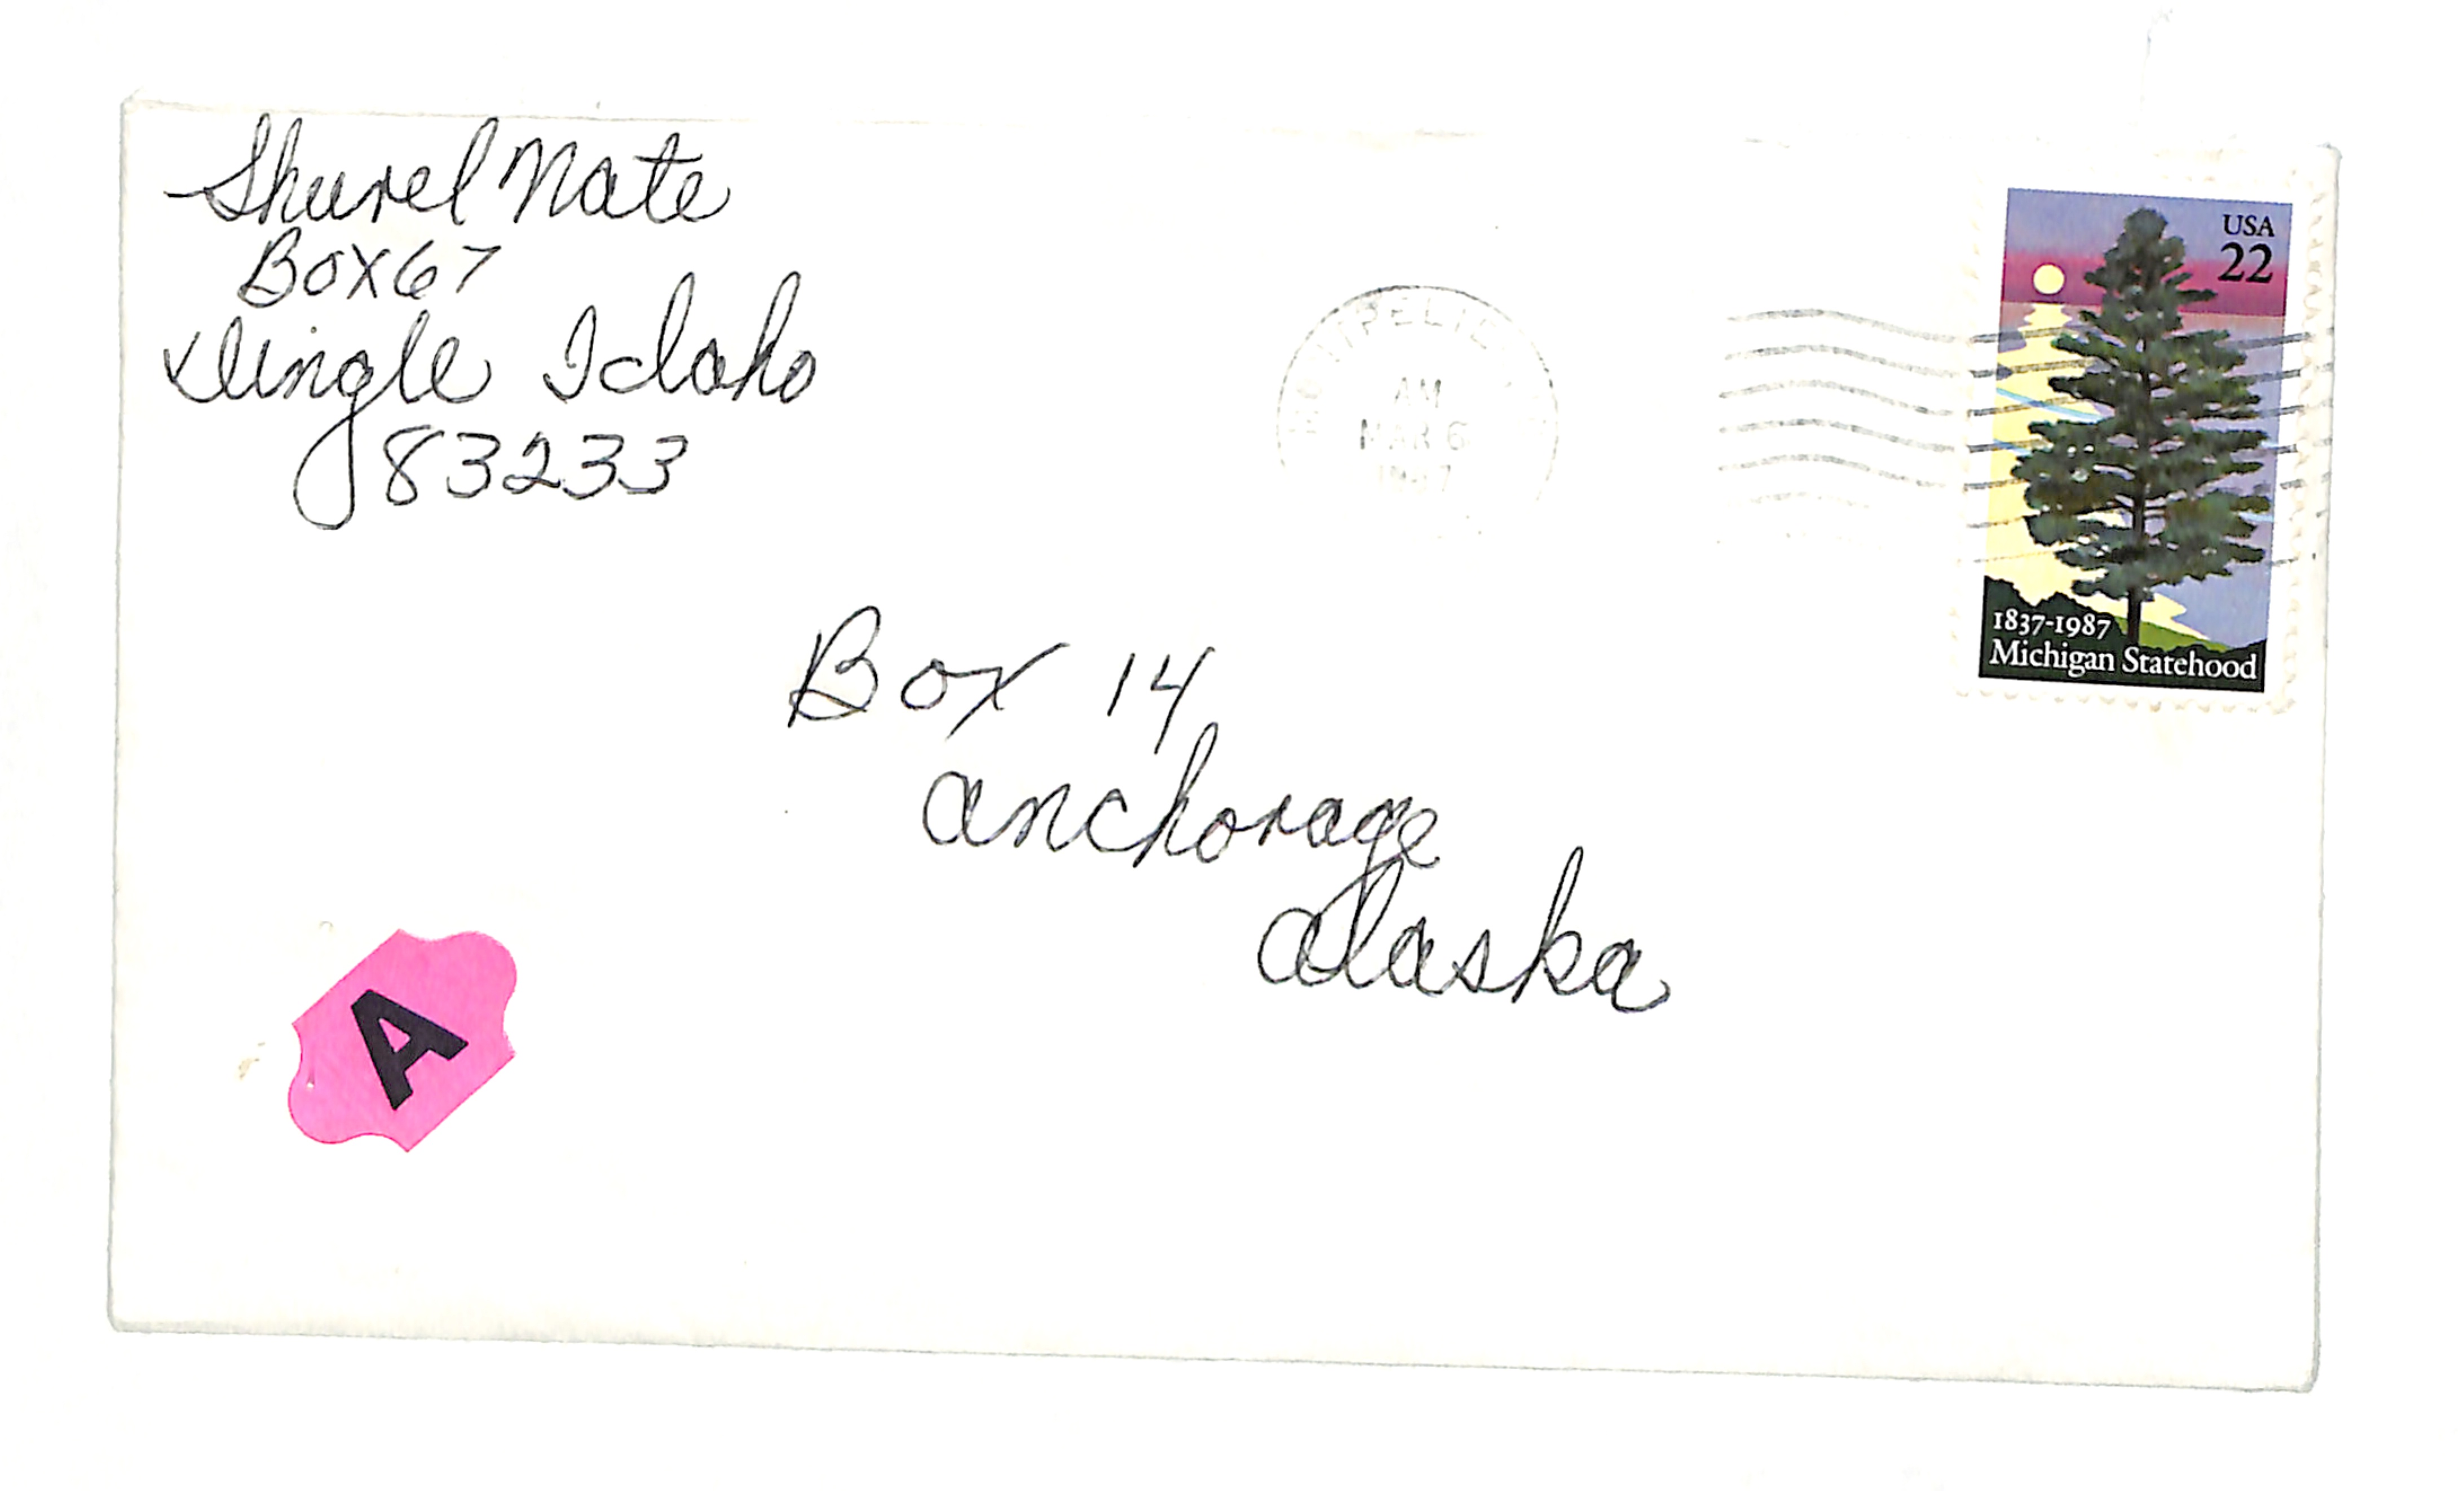 Shurel Nate
Box 67
Dingle Idaho
83233
MONTPELIER
AM
MAR 6
1987
USA
22
1837-1987
Michigan Statehood
Box 14
Anchorage
Alaska
A